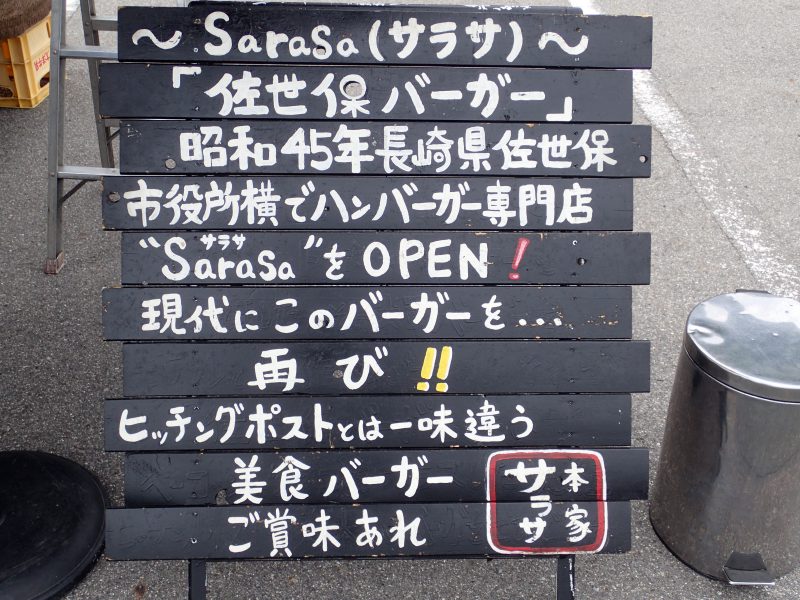 ～Sarasa(サラサ)～
「佐世保バーガー」
昭和45年長崎県佐世保
市役所横でハンバーガー専門店
サラサ
"Sarasa"をOPEN!
現代にこのバーガーを...
再び!!
ヒッチングポストとは一味違う
美食バーガー
ご賞味あれ
本家
サラサ